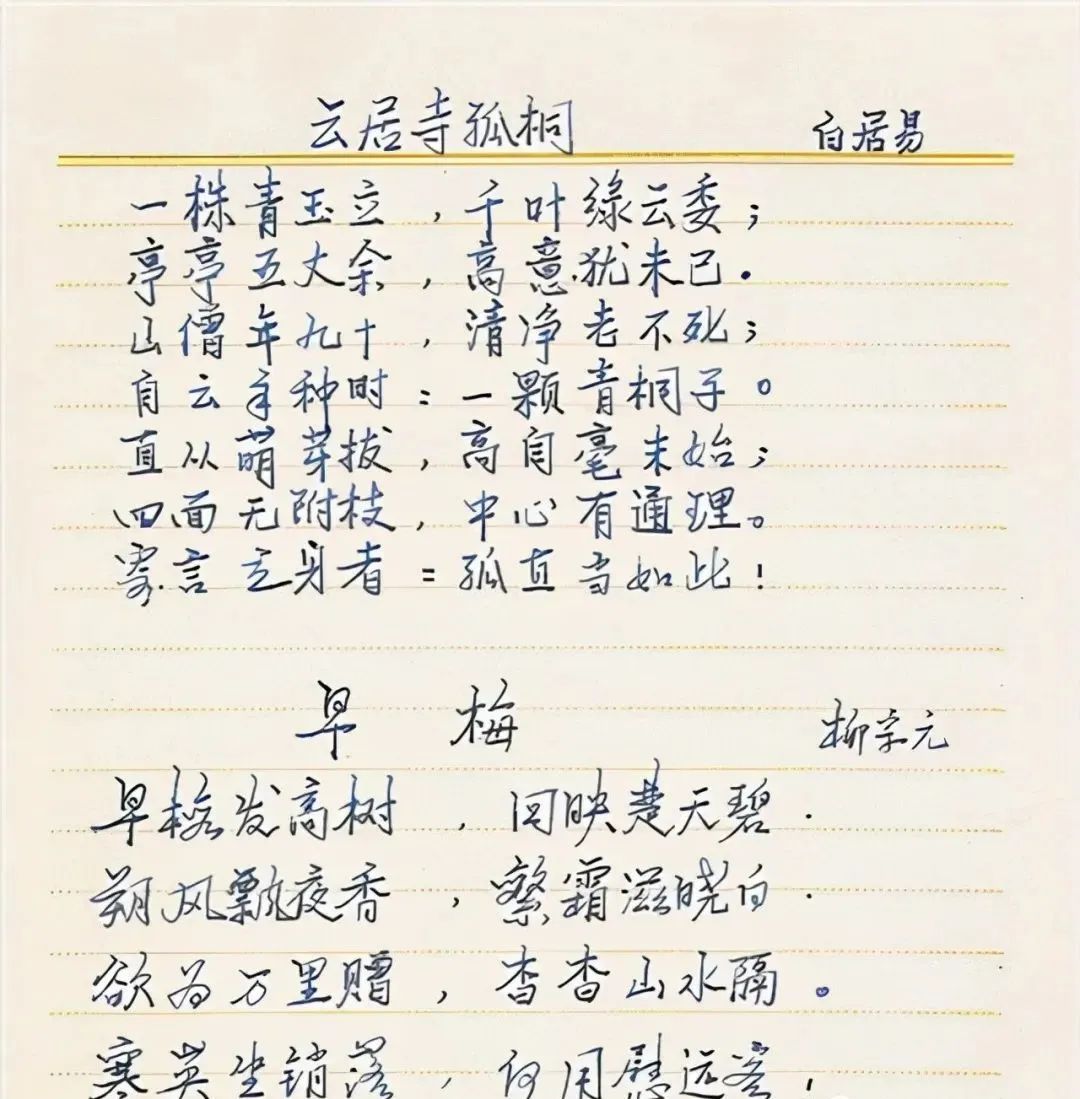 云居寺孤桐 白居易
一株青玉立，千叶綠云委；
亭亭五丈余，高意犹未已.
山僧年九十，清净老不死；
自云手种时：一颗青桐子。
直从萌芽拔，高自毫末始；
四面无附枝，中心有通理。
寄言立身者：孤直当如此！
早梅 柳宗元
早梅发高树，回映楚天碧.
朔风飘夜香，繁霜滋晓白.
欲为万里赠，杳杳山水隔。
寒英坐销落，何用慰远客！